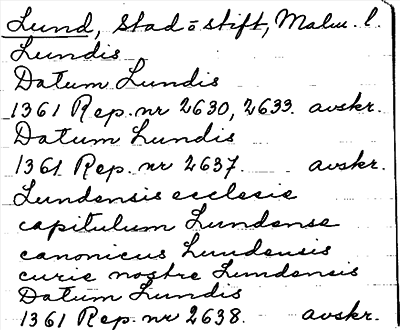 Lund, Stad o stift, Malm. l.
Lundis
Datum Lundis
1361 Rep. nr 2630, 2633. avskr.
Datum Lundis
1361 Rep. nr 2637. avskr.
Lundensis ecclesie
capitulum Lundense
canonicus Lundensis
curie nostre Lundensis
Datum Lundis
1361 Rep. nr 2638. avskr.